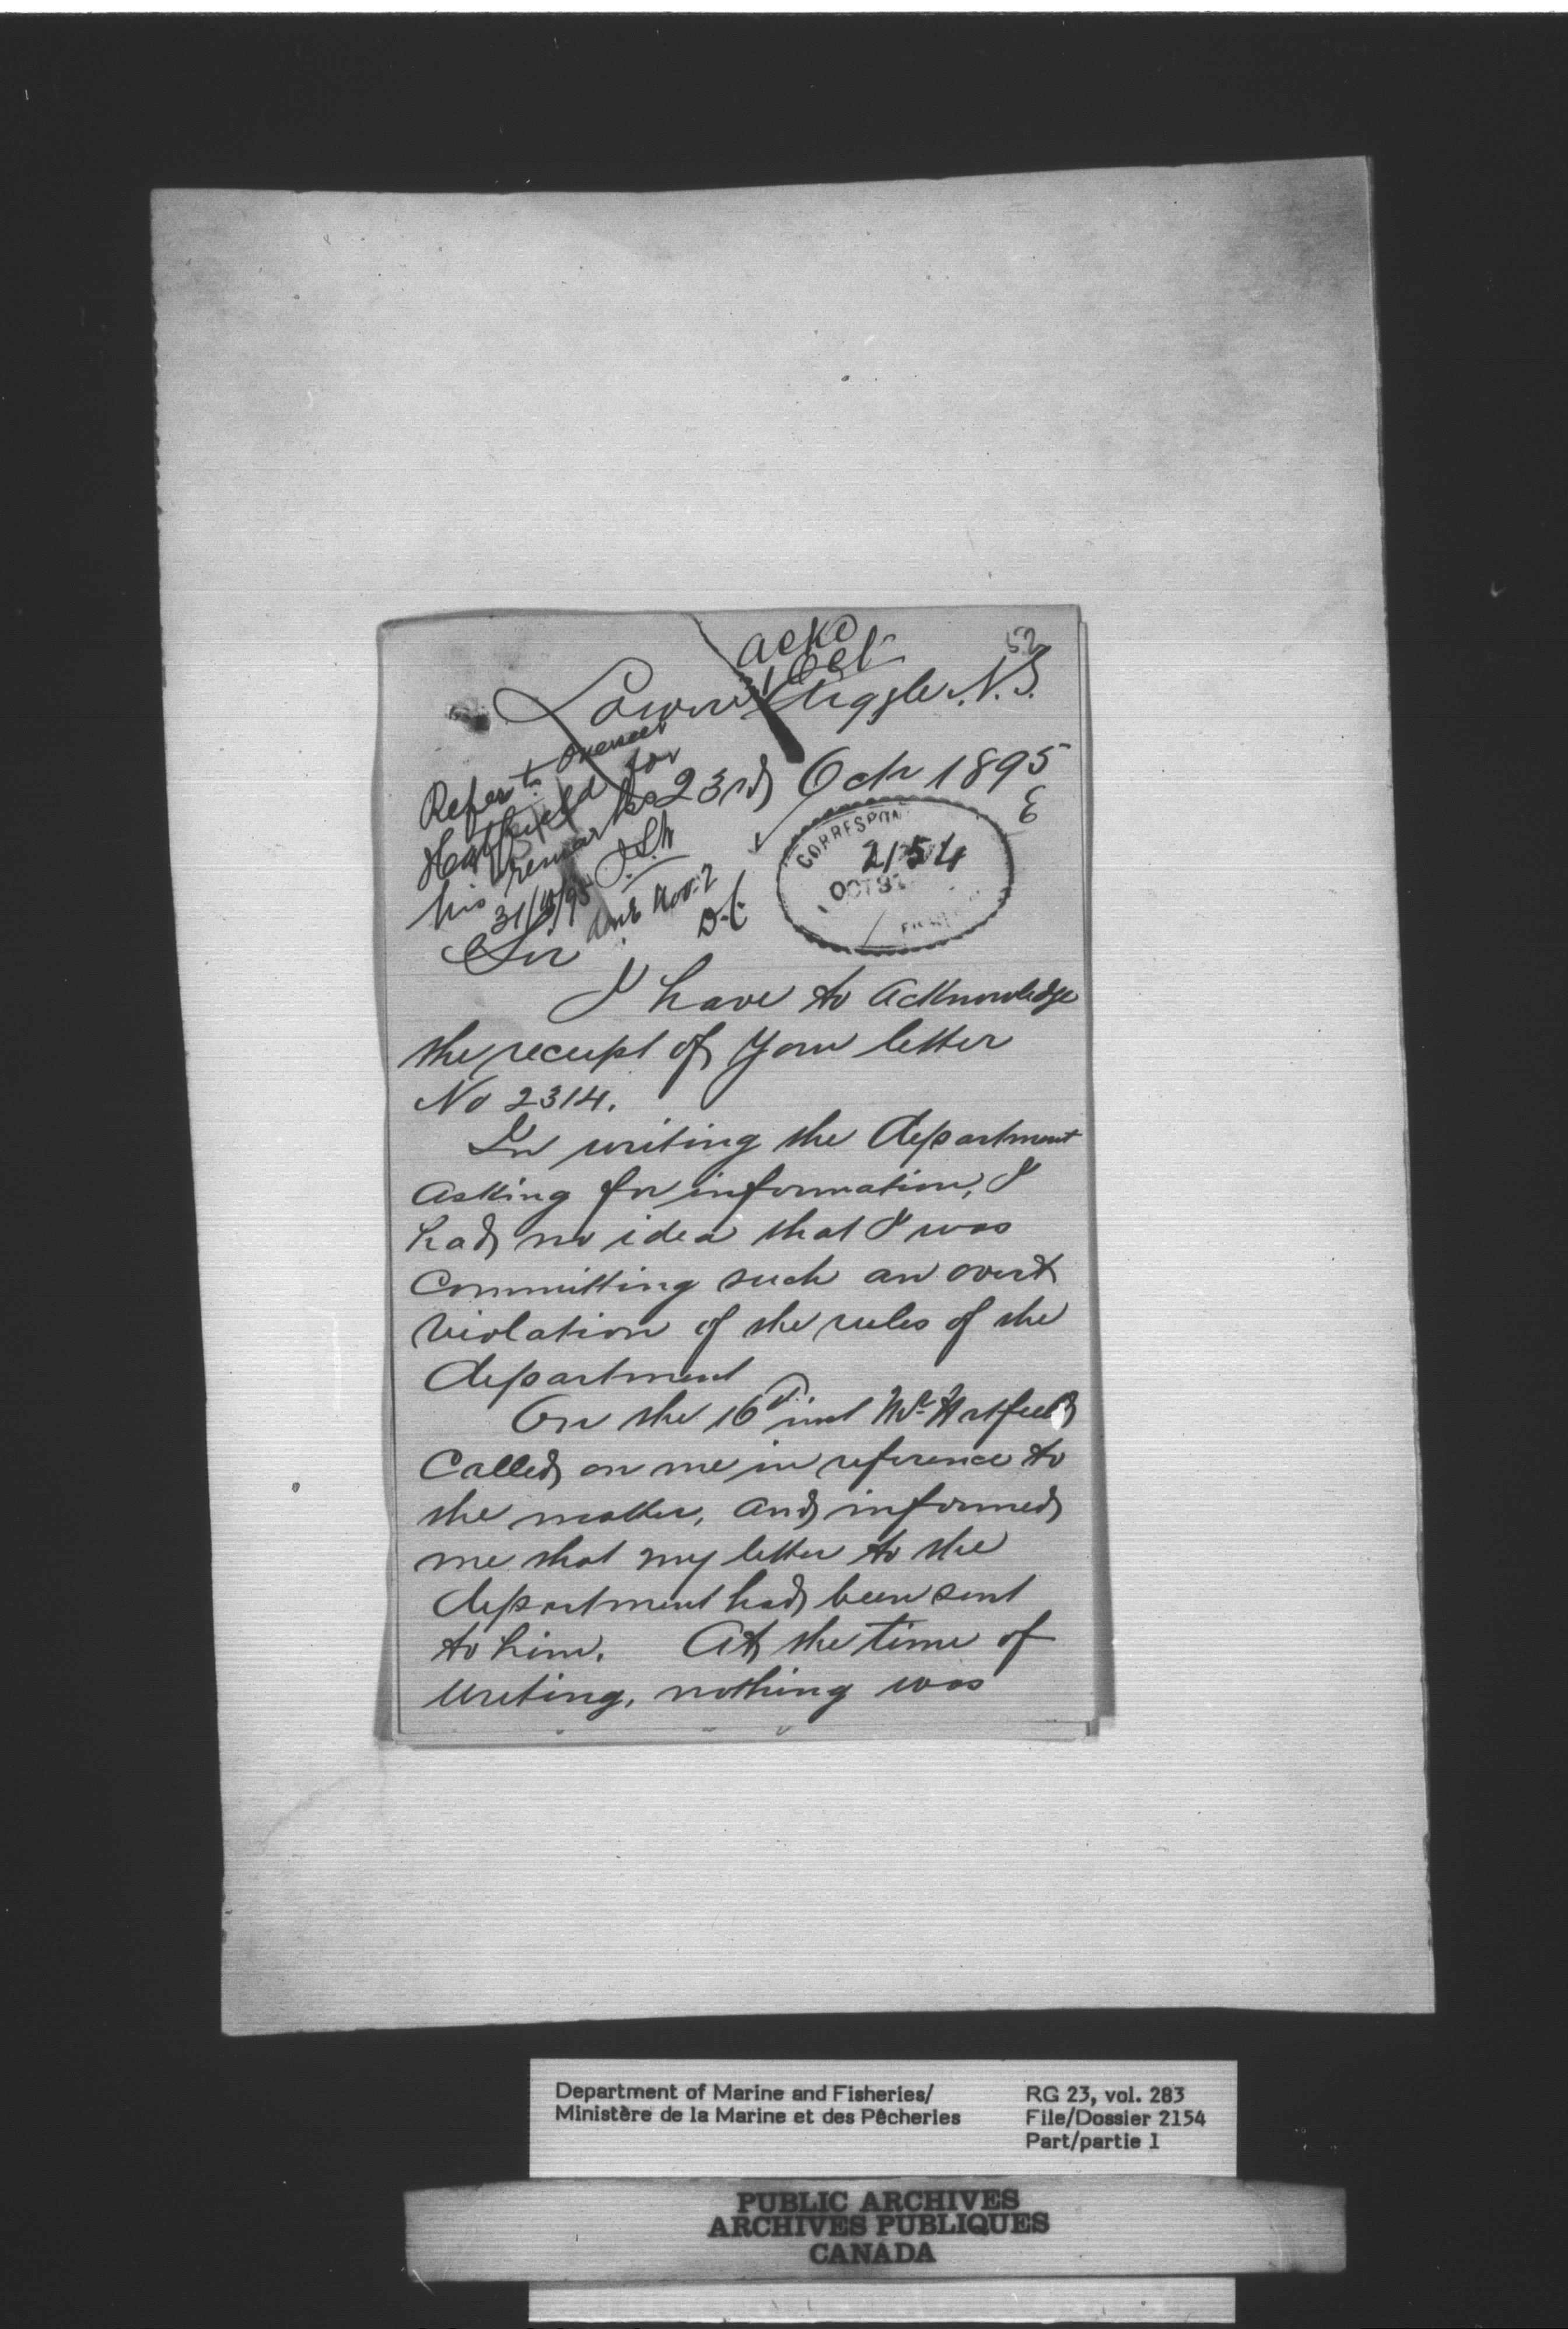 52
ackd
31 Oct
Lower Argyle. N.S.
23rd Oct 1895
E
Refer to Overseer
Hatfield for
his remarks
J.S.W
31/10/95
Nov. 2
D.C.
CORRESPON
2154
OCT 31
Sir
I have to acknowledge
the receipt of your letter
No 2314.
In writing the department
asking for information, I
had no idea that I was
committing such an overt
violation of the rules of the
department
On the 16th inst Mr. Hatfield
called on me in reference to
the matter, and informed
me that my letter to the
department had been sent
to him. At the time of
writing, nothing was
Department of Marine and Fisheries/
Ministère de la Marine et des Pêcheries
RG 23, vol. 283
File/Dossier 2154
Part/partie 1
PUBLIC ARCHIVES
ARCHIVES PUBLIQUES
CANADA